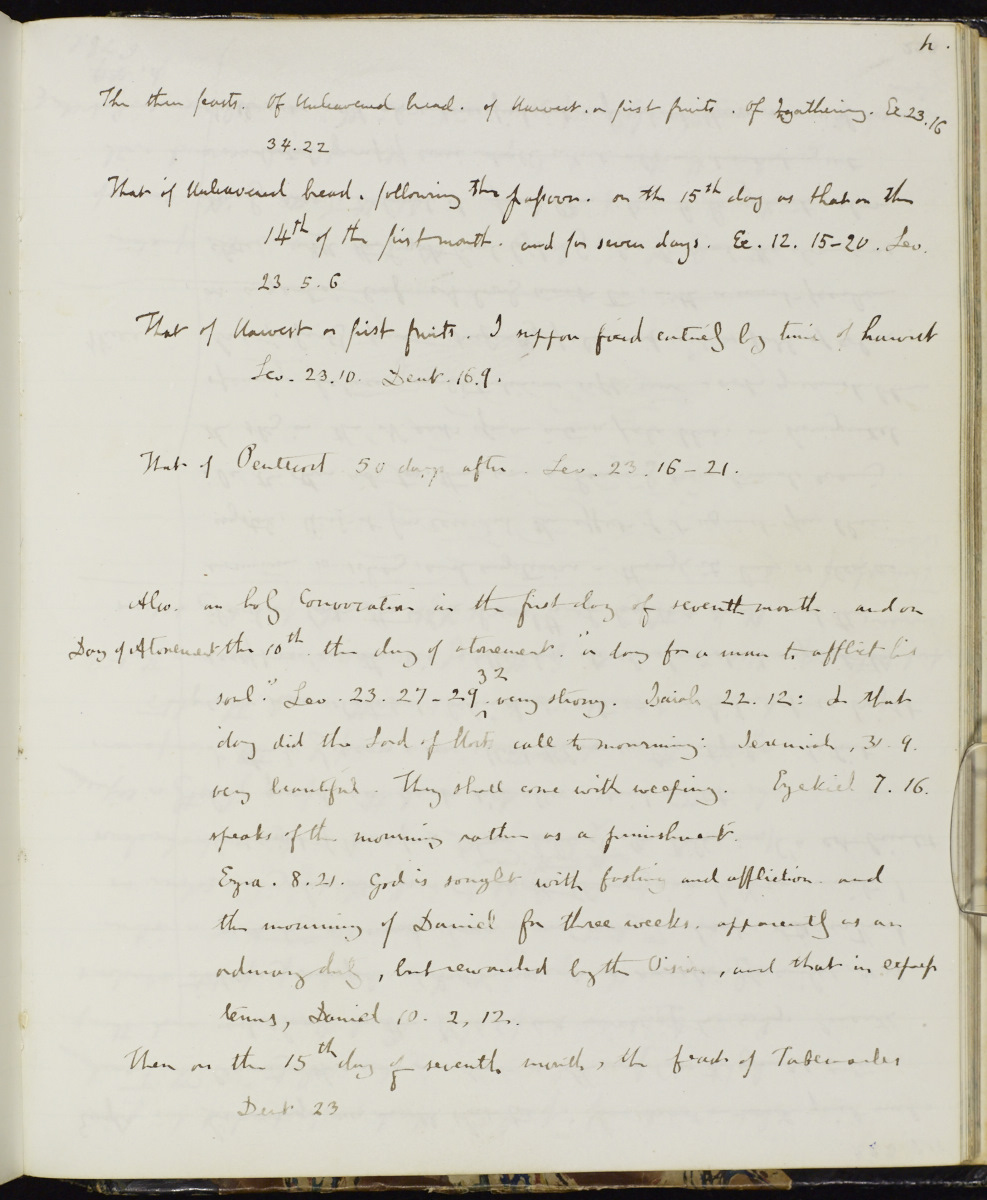 h.
The three feasts. Of Unleavened bread. of Harvest. or first fruits. Of Ingathering. Ex. 23.16
34.22
That of Unleavened bread. following the passover. on the 15th day as that on the
14th of the first month. and for seven days. Ex. 12. 15-20. Lev.
23. 5. 6
That of Harvest or first fruits. I suppose fixed entirely by time of harvest
Lev. 23.10. Deut. 16.9.
That of Pentecost 50 days after. Lev. 23. 16-21.
Also. an holy Convocation in the first day of seventh month. and on
Day of Atonement the 10th. the day of atonement. "a day for a man to afflict his
soul." Lev. 23. 27-29. 32 very strong. Isaiah 22. 12: In that
day did the Lord of Hosts call to mourning: Jeremiah, 31. 9.
very beautiful. They shall come with weeping. Ezekiel 7. 16.
speaks of the mourning rather as a punishment.
Ezra. 8. 21. God is sought with fasting and affliction. and
the mourning of Daniel for three weeks. apparently as an
ordinary duty, but rewarded by the Vision, and that in express
terms, Daniel 10. 2, 12.
Then on the 15th day of seventh month, the feast of Tabernacles
Deut. 23